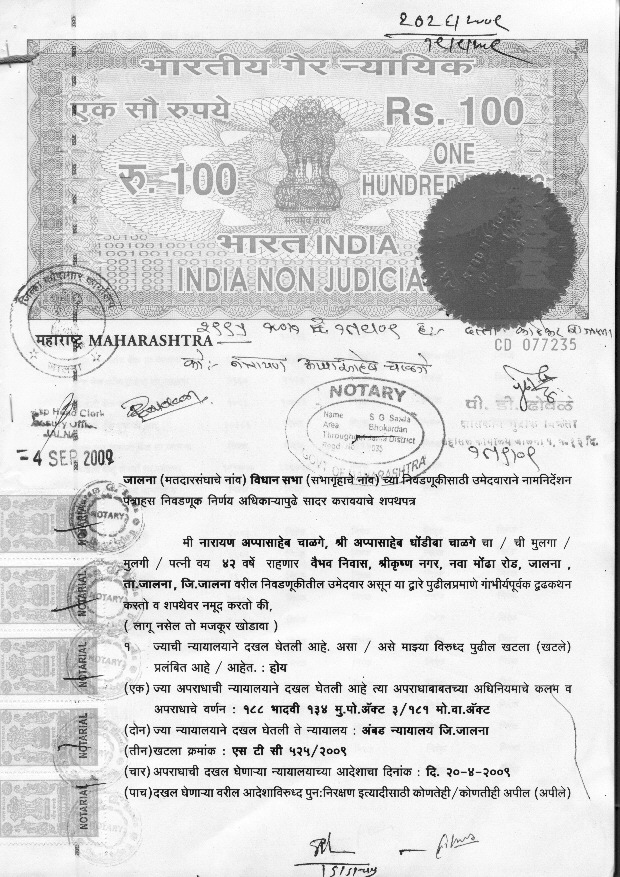 भारतीय गैर न्यायिक
एक सौ रुपये
Rs. 100
रु. 100
ONE
HUNDRED
सत्यमेव जयते
भारत INDIA
INDIA NON JUDICIA
महाराष्ट्र MAHARASHTRA
CD 077235
NOTARY
Name S G Saxla
Area Bhokardan
District
GOVT OF MAHARASHTRA
पी. डी. ढोवळे
JALNA
- 4 SEP 2009
जालना (मतदारसंघाचे नांव) विधान सभा (सभागृहाचे नांव) च्या निवडणूकीसाठी उमेदवाराने नामनिर्देशन
पत्रासह निवडणूक निर्णय अधिकाऱ्यापुढे सादर करावयाचे शपथपत्र
मी नारायण अप्पासाहेब चाळगे, श्री अप्पासाहेब धोंडीबा चाळगे चा / ची मुलगा /
मुलगी / पत्नी वय ४२ वर्षे राहणार वैभव निवास, श्रीकृष्ण नगर, नवा मोंढा रोड, जालना ,
ता.जालना, जि.जालना वरील निवडणूकीतील उमेदवार असून या द्वारे पुढीलप्रमाणे गांभीर्यपूर्वक द्रढकथन
करतो व शपथेवर नमूद करतो की,
( लागू नसेल तो मजकूर खोडावा )
१ ज्याची न्यायालयाने दखल घेतली आहे. असा / असे माझ्या विरुध्द पुढील खटला (खटले)
प्रलंबित आहे / आहेत. : होय
(एक) ज्या अपराधाची न्यायालयाने दखल घेतली आहे त्या अपराधाबाबतच्या अधिनियमाचे कलम व
अपराधाचे वर्णन : १८८ भादवी १३४ मु.पो.अ‍ॅक्ट ३/१८१ मो.वा.अ‍ॅक्ट
(दोन) ज्या न्यायालयाने दखल घेतली ते न्यायालय : अंबड न्यायालय जि.जालना
(तीन)खटला क्रमांक : एस टी सी ५२५/२००९
(चार) अपराधाची दखल घेणाऱ्या न्यायालयाच्या आदेशाचा दिनांक : दि. २०-४-२००९
(पाच)दखल घेणाऱ्या वरील आदेशाविरुध्द पुन:निरक्षण इत्यादीसाठी कोणतेही/कोणतीही अपील (अपीले)
NOTARY
NOTARIAL
NOTARIAL
NOTARIAL
NOTARIAL